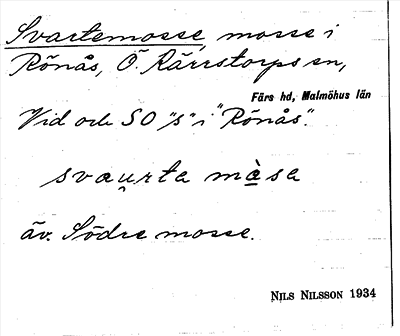 Svartemosse, mosse i
Rönås, Ö. Kärrstorps sn,
Färs hd, Malmöhus län
Vid och SO "s" i "Rönås".
svau̯rta mạ̀sa
äv. Södre mosse.
NILS NILSSON 1934